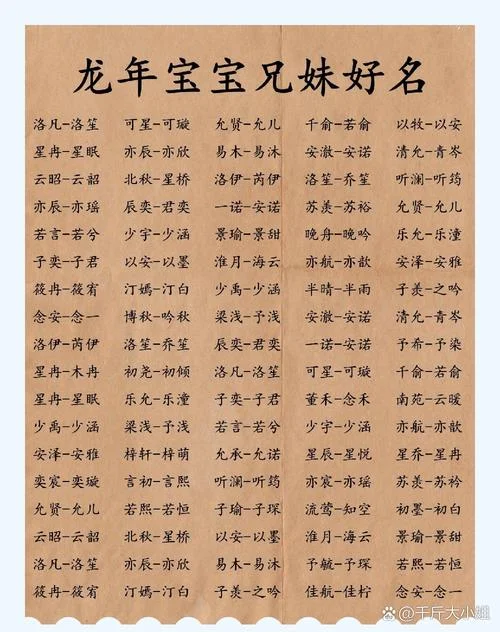 龙年宝宝兄妹好名
洛凡-洛笙 可星-可璇 允贤-允儿 千俞-若俞 以牧-以安
星冉-星眠 亦辰-亦欣 易木-易沐 安澈-安诺 清允-青岑
云昭-云韶 北秋-星桥 洛伊-芮伊 洛笙-乔笙 听澜-听筠
亦辰-亦瑶 辰奕-君奕 一诺-安诺 苏羡-苏裕 允贤-允儿
若言-若兮 少宇-少涵 景瑜-景甜 晚舟-晚吟 乐允-乐潼
子奕-子君 以安-以墨 淮月-海云 亦航-亦歆 安泽-安雅
筱冉-筱宥 汀嫣-汀白 少禹-少涵 半晴-半雨 子羡-之吟
念安-念一 博秋-吟秋 梁浅-予浅 安澈-安诺 清允-青岑
洛伊-芮伊 洛笙-乔笙 辰奕-君奕 一诺-安诺 予希-予染
星冉-木冉 初尧-初倾 洛凡-洛笙 可星-可璇 千俞-若俞
星冉-星眠 乐允-乐潼 子奕-子君 董禾-念禾 南苑-云暖
少禹-少涵 梁浅-予浅 若言-若兮 少宇-少涵 亦航-亦歆
安泽-安雅 梓轩-梓萌 允承-允诺 星辰-星悦 星乔-星冉
奕宸-奕璇 言初-言熙 听澜-听筠 亦宸-亦瑶 苏羡-苏衿
允贤-允儿 若熙-若恒 子瑜-子琛 流莺-知空 初墨-初白
云昭-云韶 北秋-星桥 以安-以墨 淮月-海云 景瑜-景甜
洛凡-洛笙 亦辰-亦欣 易木-易沐 予毓-予琛 若熙-若恒
筱冉-筱宥 汀嫣-汀白 子羡-之吟 佳航-佳柠 念安-念一
千斤大小姐